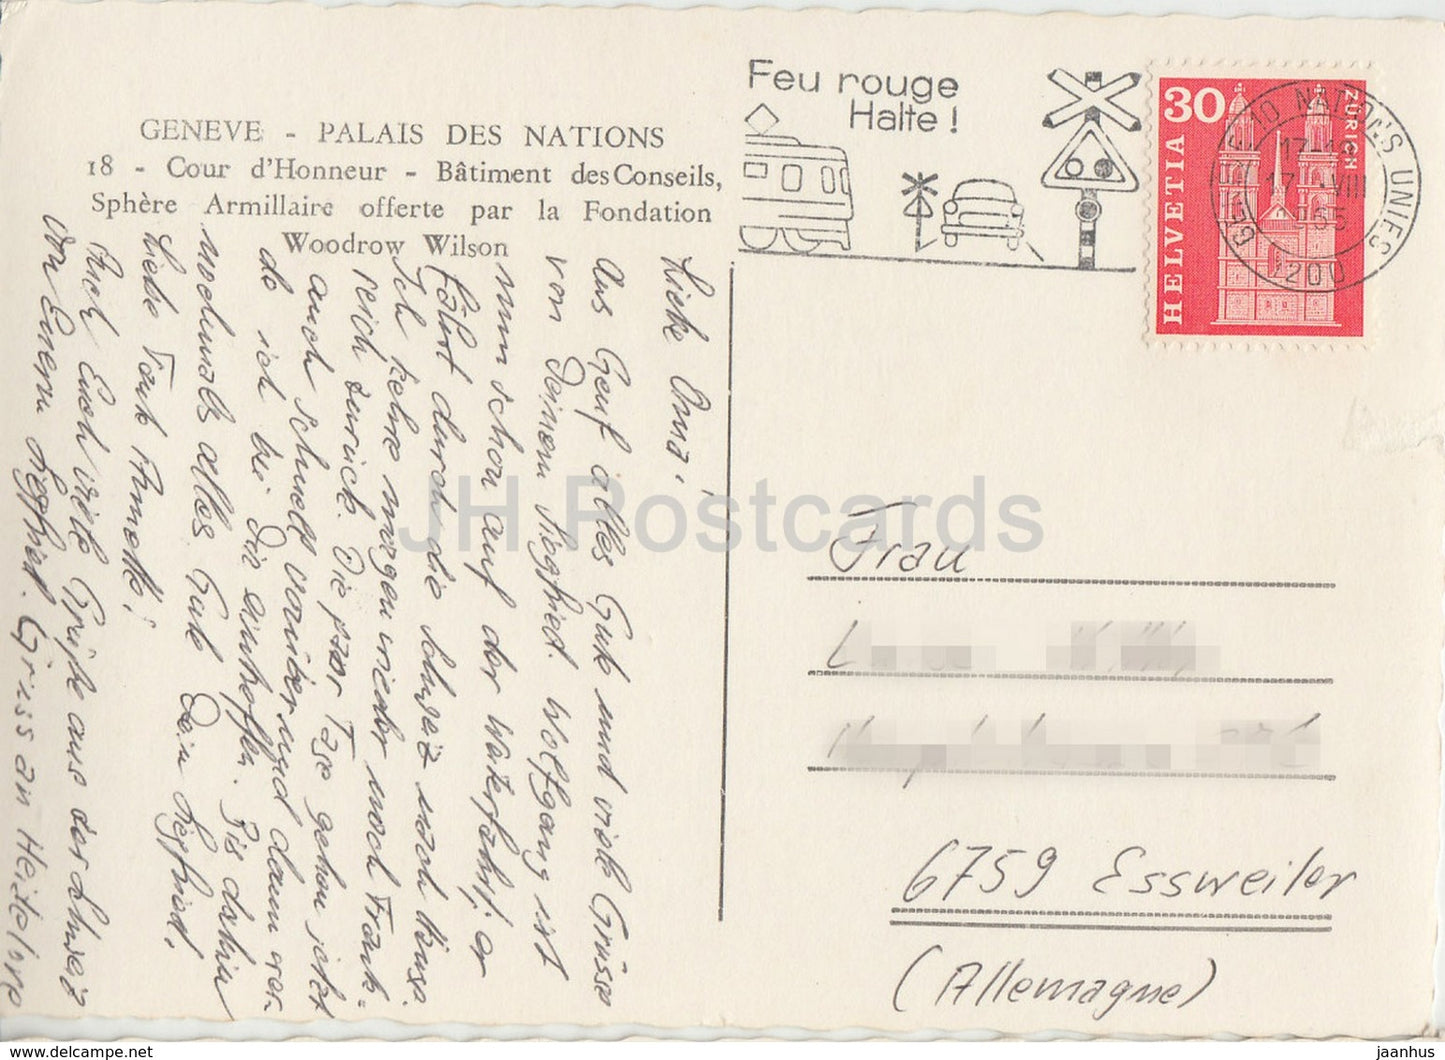 GENEVE - PALAIS DES NATIONS
18 - Cour d'Honneur - Bâtiment des Conseils,
Sphère Armillaire offerte par la Fondation
Woodrow Wilson
Feu rouge
Halte !
30
ZÜRICH
HELVETIA
10 NATIONS UNIES
17-18
17. -VIII
965
1200
Liebe Oma!
Aus Genf alles Gute und viele Grüsse
von Deinem Siegfried. Wolfgang ist
nun schon auf der Weiterfahrt, er
fährt durch die Schweiz nach Hause.
Ich kehre morgen wieder nach Frank-
reich zurück. Die paar Tage gehen jetzt
auch schnell vorüber und dann wer-
de ich bei Dir eintreffen. Bis dahin
nochmals alles Gute Dein Siegfried.
Liebe Tante Annelie!
Auch Euch viele Grüße aus der Schweiz
von Eurem Siegfried. Gruss an Heidelore
Frau
6759 Essweiler
(Allemagne)
JH Postcards
delcampe.net
jaanhus